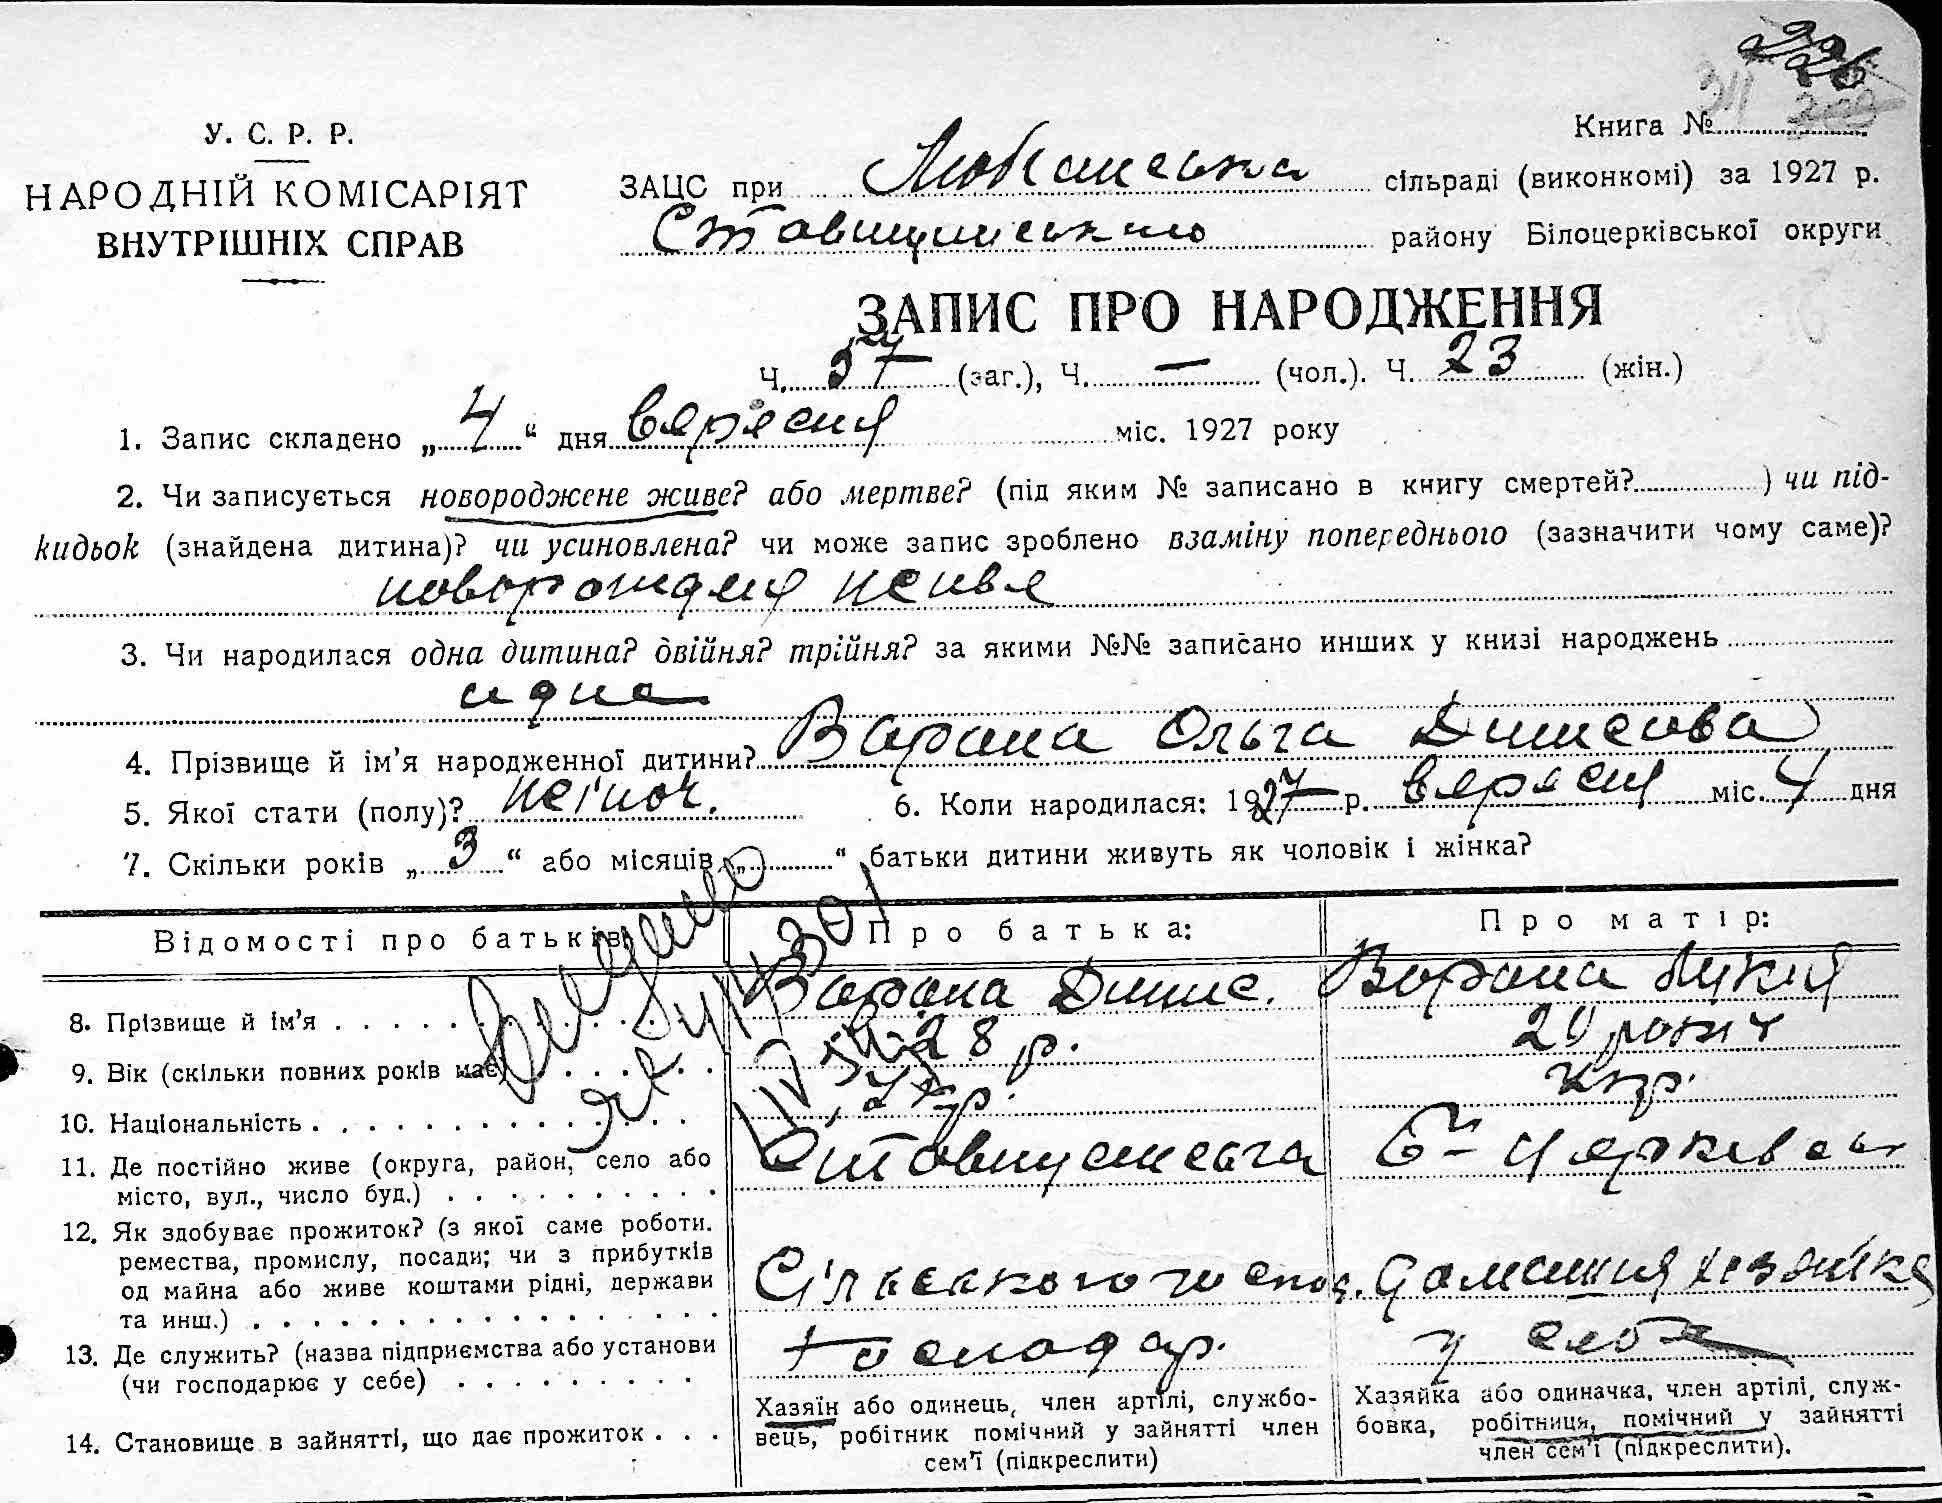 226
311
Книга №
У. С. Р. Р.
НАРОДНІЙ КОМІСАРІЯТ
ВНУТРІШНІХ СПРАВ
ЗАЦС при сільраді (виконкомі) за 1927 р.
Ставищинського району Білоцерківської округи
ЗАПИС ПРО НАРОДЖЕННЯ
Ч. 37 (заг.), Ч. — (чол.). Ч. 23 (жін.)
1. Запис складено „ 4 “ дня вересня міс. 1927 року
2. Чи записується новороджене живе? або мертве? (під яким № записано в книгу смертей? ) чи під-
кидьок (знайдена дитина)? чи усиновлена? чи може запис зроблено взаміну попереднього (зазначити чому саме)?
3. Чи народилася одна дитина? двійня? трійня? за якими №№ записано инших у книзі народжень
одна
4. Прізвище й ім’я народженної дитини? Ворона Ольга Дишсова
5. Якої стати (полу)? жіноч. 6. Коли народилася: 1927 р. вересня міс. 4 дня
7. Скільки років „ 3 “ або місяців „ “ батьки дитини живуть як чоловік і жінка?
Відомості про батьків: Про батька: Про матір:
8. Прізвище й ім’я Ворона Ворона Лукія
9. Вік (скільки повних років має) 28 р. 20 років
10. Національність Укр. укр.
11. Де постійно живе (округа, район, село або
місто, вул., число буд.)
12. Як здобуває прожиток? (з якої саме роботи.
ремества, промислу, посади; чи з прибутків
од майна або живе коштами рідні, держави
та инш.) Сільського госпо. домашня хозяйка
13. Де служить? (назва підприємства або установи
(чи господарює у себе) Господар. у себе
14. Становище в зайнятті, що дає прожиток
Хазяїн або одинець, член артілі, службо-
вець, робітник помічний у зайнятті член
сем’ї (підкреслити)
Хазяйка або одиначка, член артілі, служ-
бовка, робітниця, помічний у зайнятті
член сем’ї (підкреслити).